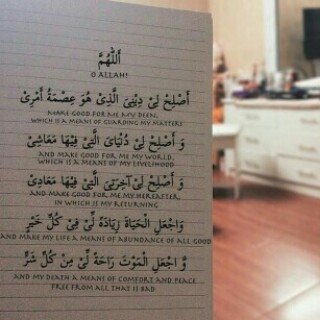 اَللّٰهُمَّ
O ALLAH!
أَصْلِحْ لِيْ دِيْنِيَ الَّذِيْ هُوَ عِصْمَةُ أَمْرِيْ
MAKE GOOD FOR ME MY DEEN,
WHICH IS A MEANS OF GUARDING MY MATTERS
وَ أَصْلِحْ لِيْ دُنْيَايَ الَّتِيْ فِيْهَا مَعَاشِيْ
AND MAKE GOOD FOR ME MY WORLD,
WHICH IS A MEANS OF MY LIVELIHOOD
وَ أَصْلِحْ لِيْ آخِرَتِيْ الَّتِيْ فِيْهَا مَعَادِيْ
AND MAKE GOOD FOR ME MY HEREAFTER,
IN WHICH IS MY RETURNING
وَاجْعَلِ الْحَيَاةَ زِيَادَةً لِّيْ فِيْ كُلِّ خَيْرٍ
AND MAKE MY LIFE A MEANS OF ABUNDANCE OF ALL GOOD
وَ اجْعَلِ الْمَوْتَ رَاحَةً لِّيْ مِنْ كُلِّ شَرٍّ
AND MY DEATH A MEANS OF COMFORT AND PEACE
FREE FROM ALL THAT IS BAD